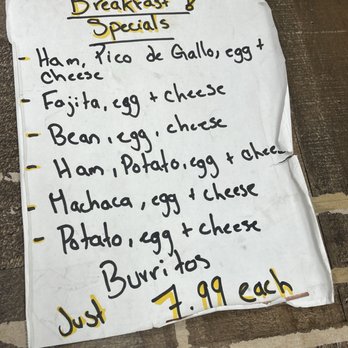 Breakfast &
Specials
- Ham, Pico de Gallo, egg +
cheese
- Fajita, egg + cheese
- Bean, egg, cheese
- Ham, Potato, egg + chee
- Machaca, egg + cheese
- Potato, egg + cheese
Burritos
Just 7.99 each